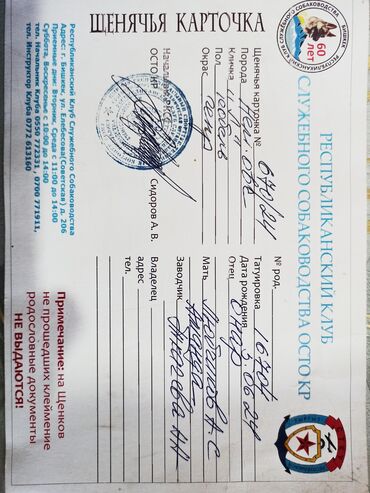 РЕСПУБЛИКАНСКИЙ КЛУБ
СЛУЖЕБНОГО СОБАКОВОДСТВА ОСТО КР
60
ЛЕТ
ЩЕНЯЧЬЯ КАРТОЧКА
Щенячья карточка № 670/24
Порода Нем. овч.
Кличка
Пол кобель
Окрас
Начальник РКСС
ОСТО КР Сидоров А. В.
№ род.
Татуировка 1670
Дата рождения 3.06.24
Отец
Мать
Заводчик
Владелец
адрес
тел.
Республиканский Клуб Служебного Собаководства
Адрес: г. Бишкек, ул. Елебесова(Советская) д. 206
Приемные дни: Вторник, Среда с 11:00 до 14:00
Суббота, Воскресенье с 10:00 до 14:00
тел. Начальник Клуба 0550 772331 , 0700 771911,
тел. Инструктор Клуба 0772 613160
Примечание: на Щенков
не прошедших клеймение
родословные документы
НЕ ВЫДАЮТСЯ!